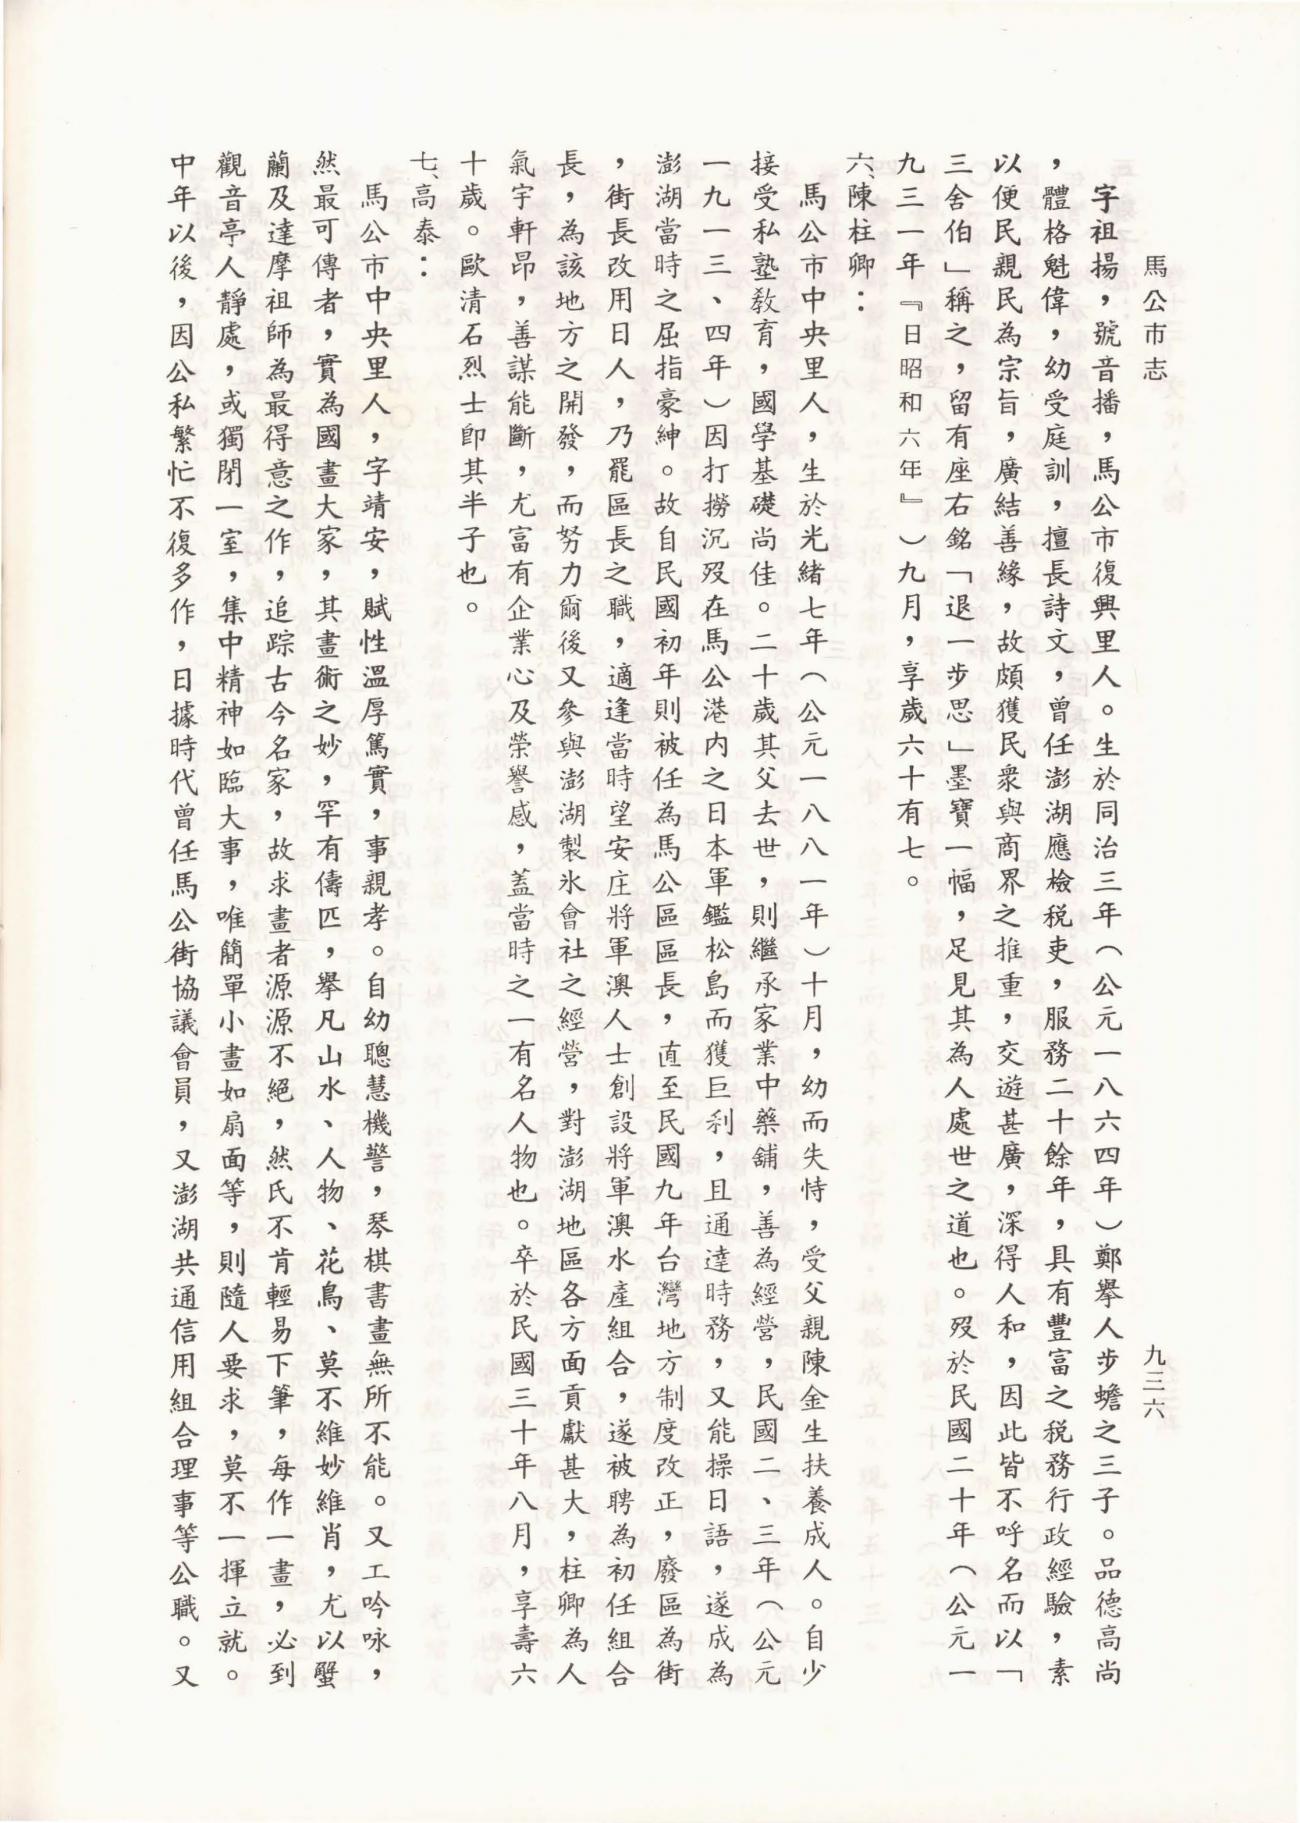 馬公市志
九三六
字祖揚，號音播，馬公市復興里人。生於同治三年（公元一八六四年）鄭舉人步蟾之三子。品德高尚
，體格魁偉，幼受庭訓，擅長詩文，曾任澎湖應檢税吏，服務二十餘年，具有豐富之税務行政經驗，素
以便民親民為宗旨，廣結善緣，故頗獲民衆與商界之推重，交遊甚廣，深得人和，因此皆不呼名而以「
三舍伯」稱之，留有座右銘「退一步思」墨寶一幅，足見其為人處世之道也。歿於民國二十年（公元一
九三一年『日昭和六年』）九月，享歲六十有七。
六、陳柱卿：
馬公市中央里人，生於光緒七年（公元一八八一年）十月，幼而失恃，受父親陳金生扶養成人。自少
接受私塾教育，國學基礎尚佳。二十歲其父去世，則繼承家業中藥鋪，善為經營，民國二、三年（公元
一九一三、四年）因打撈沉歿在馬公港内之日本軍鑑松島而獲巨利，且通達時務，又能操日語，遂成為
澎湖當時之屈指豪紳。故自民國初年則被任為馬公區區長，直至民國九年台灣地方制度改正，廢區為街
，街長改用日人，乃罷區長之職，適逢當時望安庄將軍澳人士創設將軍澳水產組合，遂被聘為初任組合
長，為該地方之開發，而努力爾後又參與澎湖製氷會社之經營，對澎湖地區各方面貢獻甚大，柱卿為人
氣宇軒昂，善謀能斷，尤富有企業心及榮譽感，蓋當時之一有名人物也。卒於民國三十年八月，享壽六
十歲。歐清石烈士卽其半子也。
七、高泰：
馬公市中央里人，字靖安，賦性溫厚篤實，事親孝。自幼聰慧機警，琴棋書畫無所不能。又工吟咏，
然最可傳者，實為國畫大家，其畫術之妙，罕有儔匹，舉凡山水、人物、花鳥、莫不維妙維肖，尤以蟹
蘭及達摩祖師為最得意之作，追踪古今名家，故求畫者源源不絕，然氏不肯輕易下筆，每作一畫，必到
觀音亭人靜處，或獨閉一室，集中精神如臨大事，唯簡單小畫如扇面等，則隨人要求，莫不一揮立就。
中年以後，因公私繁忙不復多作，日據時代曾任馬公街協議會員，又澎湖共通信用組合理事等公職。又